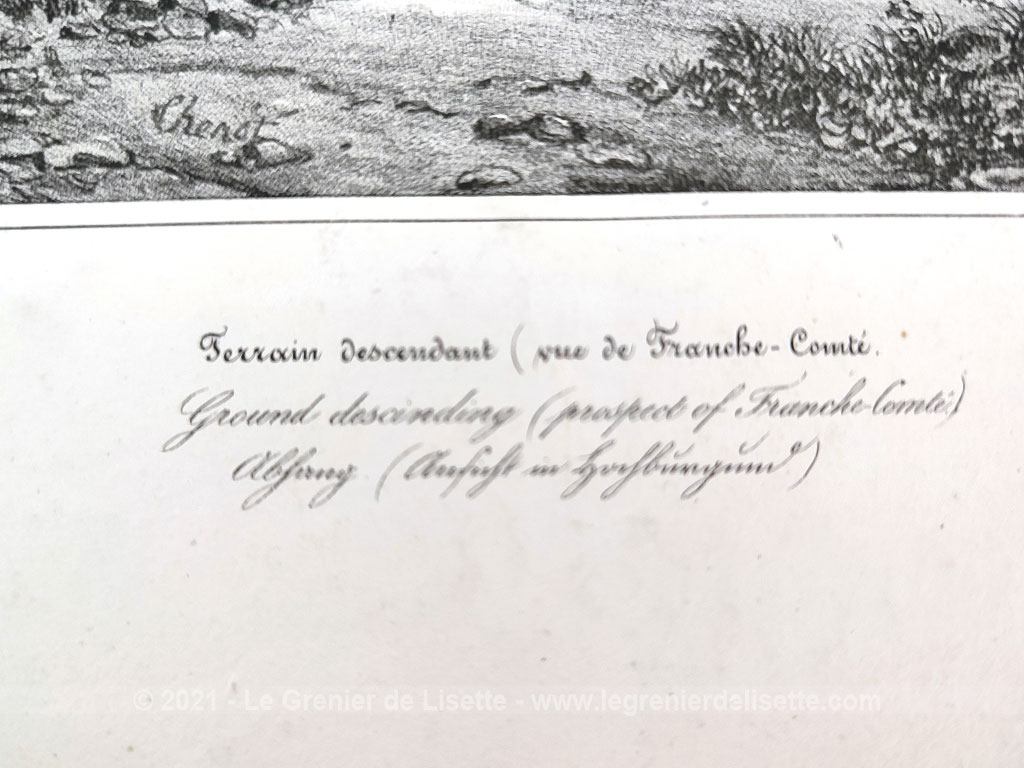 Chenot
Terrain descendant (vue de Franche-Comté.
Ground descending (prospect of Franche-Comté)
Abhang (Ansicht in Hochburgund)
© 2021 - Le Grenier de Lisette - www.legrenierdelisette.com